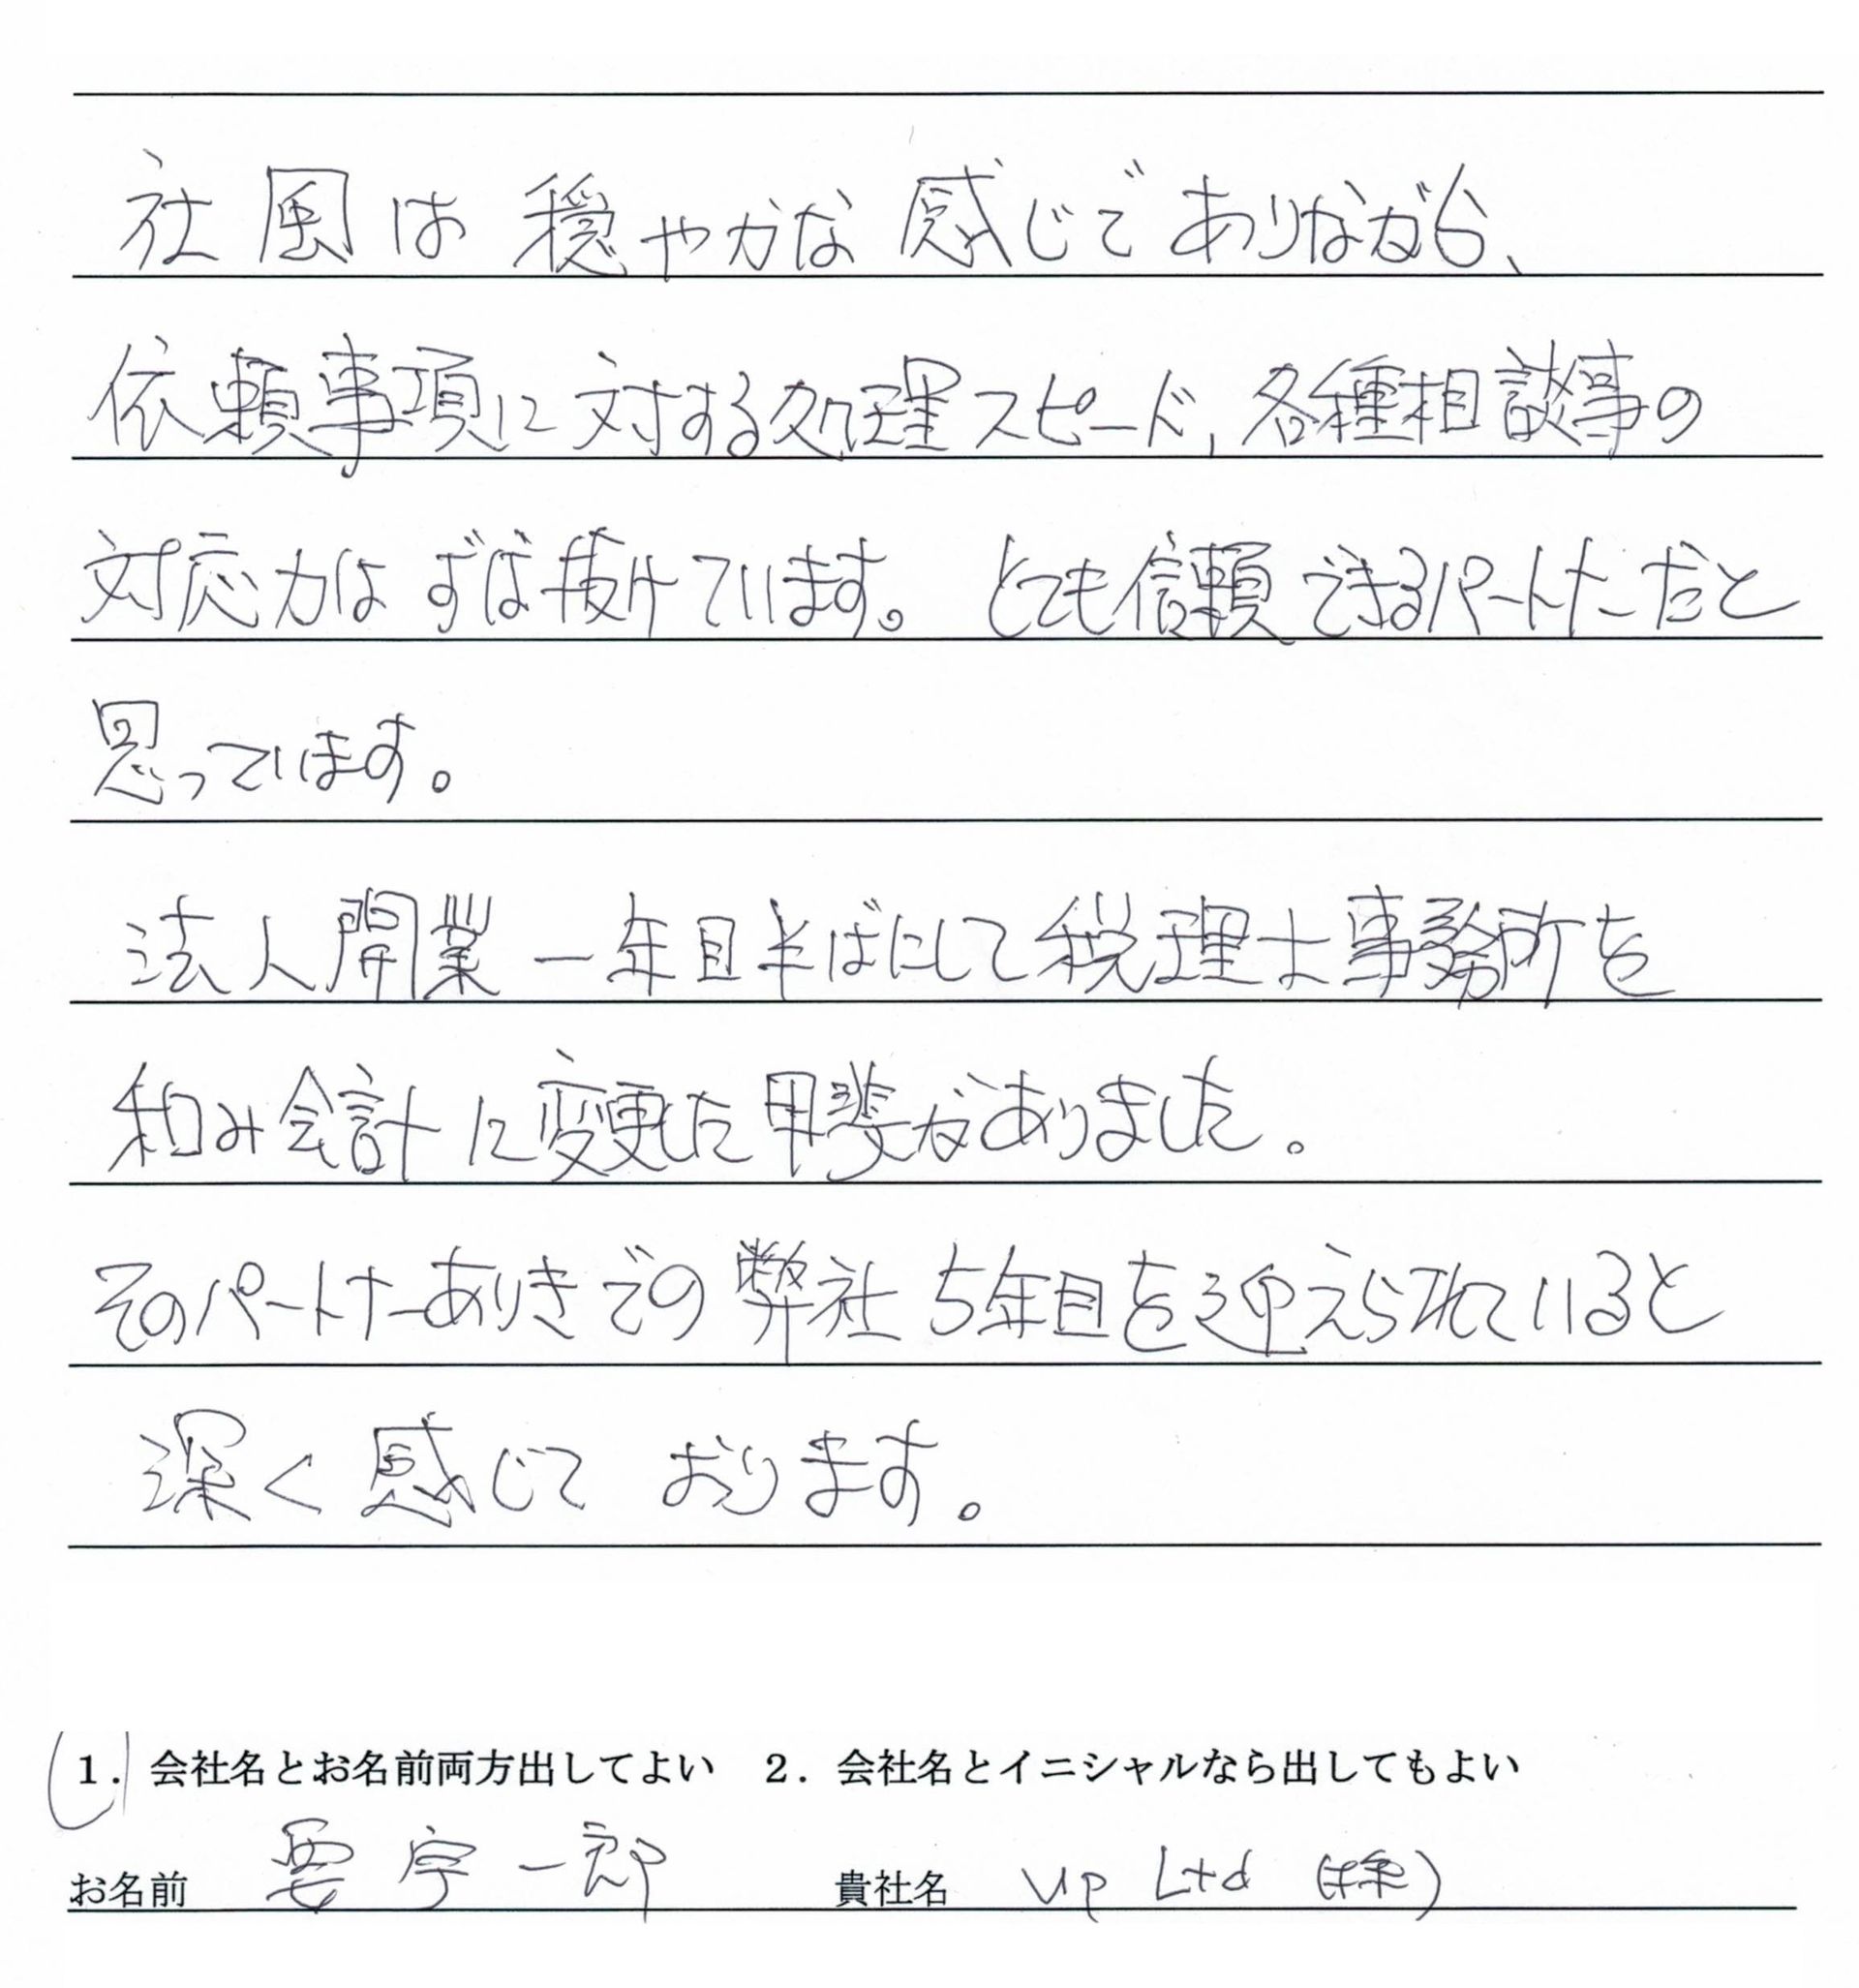 社風は穏やかな感じでありながら、
依頼事項に対する処理スピード、各種相談事の
対応力はずば抜けています。とても信頼できるパートナーだと
思っています。
法人開業一年目半ばにして税理士事務所を
和み会計に変更した甲斐がありました。
そのパートナーありきでの弊社5年目を迎えられていると
深く感じております。
1. 会社名とお名前両方出してよい 2. 会社名とイニシャルなら出してもよい
お名前 要 宇一郎 貴社名 up Ltd (株)